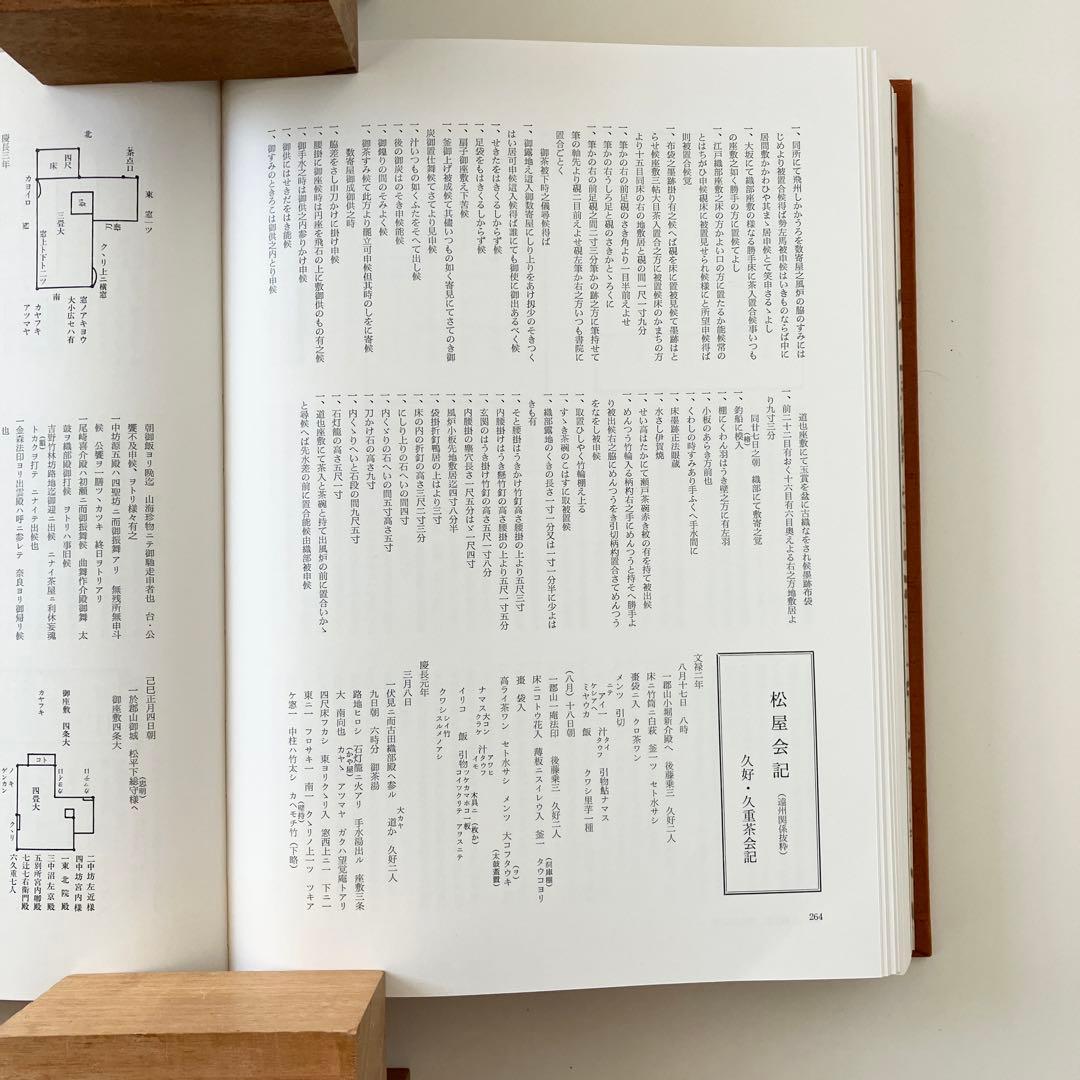 一、同所にて飛州しかかうろを数寄屋之風炉の脇のすみには
じめより被置合候得ば勢左馬被申候はいきものならば中に
居間敷かかわひや其まゝ居申候とて笑申さるゝよし
一、大坂にて織部座敷の様なる勝手床に茶入置合候事いつも
の座敷之如く勝手の方に置候てよし
一、江戸織部座敷之床の方かよい口の方に置たるか能候常の
とはちがひ申候硯床に被置見せられ候様にと所望申候得ば
則被置合候覚
一、布袋之墨跡掛り有之候へば硯を床に置被見候て墨跡はと
らせ候座敷三帖大目茶入置合之方に被置候床のかまちの方
より十五目同床の右の地敷居と硯の間一尺一寸九分
一、筆かの右の前足硯のさき角より一目半前えよせ
一、筆かの右うしろ足と硯のさきかとゝろくに
一、筆かの右の前足硯之間二寸三分筆かの跡之方に筆持せて
筆の軸先より硯二目前えよせ硯左筆か右之方いつも書院に
置合ごとく
御茶被下時之儀尋候得ば
一、御露地え這入御数寄屋にしり上りをあけ拐少のそきつく
はい居可申候這入候得ば誰にても御使に御出あるべく候
一、せきたをはきくるしからず候
一、足袋をもはきくるしからず候
一、扇子御座敷え下苦候
一、釜御上げ被成候て其儘いつもの如く寄見にてさてのき御
炭御置仕舞候てさてより見申候
一、汁いつもの如くふたをそへて出し候
一、後の御炭はのそき申候能候
一、御燭りの間のそみよく候
一、御茶すみ候て此方より罷立可申候但其時のしをに寄候
数寄屋御成御供之時
一、脇差をさし申刀かけに掛け申候
一、腰掛に御座候時は円座を飛石の上に敷御供のもの有之候
一、御手水之時は御供之内参りかけ申候
一、御供にはせきだをはき能候
一、御すみのときろこは御供之内とり申候
道也座敷にて玉賞を盆に古織なをされ候墨跡布袋
一、前二十二目有おく十六目有六目奥えよる右之方地敷居よ
り九寸三分
同廿七日之朝　織部にて敷寄之覚
一、釣船に模入
一、棚にくわん羽はうき壁之方に有左羽
一、小板のあらき方前也
一、くわしの時すみあり手ふくべ手水間に
一、床墨跡正法眼蔵
一、水さし伊賀焼
一、せい高はたかにて瀬戸茶碗赤き紋の有を持て被出候
一、めんつう竹輪入る柄杓右之手にめんつうと持そへ勝手よ
り被出候右之脇にめんつうをき引切柄杓置合さてめんつう
をなをし被申候
一、取置ひしやく竹輪棚え上る
一、すゝき茶碗のこはすに取被置候
一、織部露地のくきの長さ一寸一分又は一寸一分半に少よは
きも有
一、そと腰掛はうきかけ竹釘高さ腰掛の上より五尺三寸
一、内腰掛けはうき懸竹釘の高さ腰掛の上より五尺一寸五分
一、玄関のはうき掛け竹釘の高さ五尺一寸八分
一、内腰掛の塵穴長さ一尺五分はゞ一尺四寸
一、風炉小板先地敷居迄四寸八分半
一、袋掛折釘鴨居の上はより三寸
一、床の内の折釘の高さ三尺二寸三分
一、にしり上りの石へいの間四寸
一、内くゞりの石へいの間五寸高さ五寸
一、刀かけ石の高さ九寸
一、内くゝりへいと石段の間九尺五寸
一、石灯籠の高さ五尺一寸
一、道也座敷にて茶入と茶碗と持て出風炉の前に置合いかゝ
と尋候へば先水差の前に置合能候由織部被申候
松屋会記（遠州関係抜粋）
久好・久重茶会記
文禄二年
八月十七日　八時
一郡山小堀新介殿へ　後藤乗三　久好二人
床ニ竹筒ニ白萩　釜一ツ　セト水サシ
棗袋ニ入　クロ茶ワン
メンツ　引切
ニテ　タイ
アイ一　汁タウフ　引物鮎ナマス
ケシアヘ
ミヤウカ　飯　クワシ里芋一種
（八月）十八日朝
一郡山一庵法印　後藤乗三　久好二人
床ニコトウ花入　薄板ニスイレウ入　釜一　タウコヨリ（同庫棚）
棗　袋入
高ライ茶ワン　セト水サシ　メンツ　大コフタウキ（ヲ）（太鼓蓋置）
ナマス大コンクラケ　汁タウフ　アワヒイモ　木具ニ（枚か）
イリコ　飯　引物ツケカマホコ一板コイツクリテ　アワスニテ
クワシシイ竹スルメノアシ
慶長元年
三月八日
一伏見ニ而古田織部殿へ参ル　道か　久好二人
九日朝　六時分　御茶湯　大カヤ
路地ヒロシ　石灯籠ニ火アリ　手水湯出ル　座敷三条
大　南向也　カヤゝ（かや屋）　アツマヤ　ガクハ望覚庵トアリ
四尺床フカシ　東ヨリクゝリ入　窓西上ニ一　下ニ一
東ニ一　フロサキ一　南一　クゝリノ上一ツ　ツキア
ケ窓一　中柱ハ竹太シ　カヘモチ竹（壁持）（下略）
264
慶長三年
北
茶点口
四尺
床
東　窓一ツ
カヨイロ
三畳大
クゝリ上ニ横窓
窓上ト下ト二ツ
南
窓ノアキヨウ
大小広セハ有
カヤフキ
アツマヤ
朝御飯ヨリ晩迄　山海珍物ニテ御馳走申者也　台・公
饗不及申候、ヲトリ様々有之
一中坊源五殿ハ四聖坊ニ而御振舞アリ　無残所無申斗
候　公饗ヲ一膳ツ、カツキ　終日ヲトリアリ
一尾崎喜介殿ハ初瀬ニ而御振舞候　曲舞作介殿御舞　太
鼓ヲ織部殿御打候　ヲトリハ事旧候
吉野竹林坊路地迄御迎ニ出候　ニナイ茶屋ニ利休妄魂
トカクヲ打テ　ニナイテ出候也
一金森法印ヨリ出雲殿ハ呼ニ参レテ　奈良ヨリ御帰リ候
也
己巳正月四日朝
一於郡山御城　松平下総守様へ（忠明）
御座敷四条大
御座敷　四条大
カヤフキ
コト
四畳大
ノキ
ゲンカン
クゝリ
二中坊左近様
四中坊宮内様
一東北院殿
三中沼左京殿
五別所宮内卿殿
七辻七右衛門殿
六久重七人